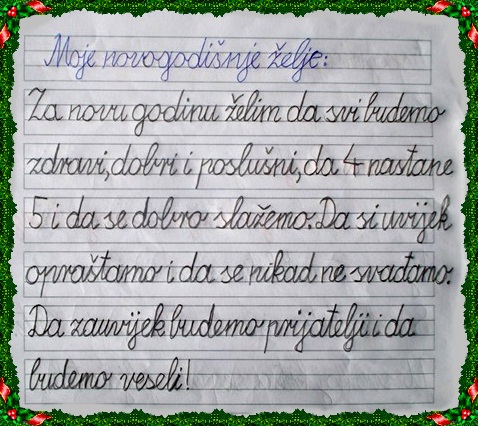 Moje novogodišnje želje:
Za novu godinu želim da svi budemo
zdravi, dobri i poslušni, da 4 nastane
5 i da se dobro slažemo. Da si uvijek
opraštamo i da se nikad ne svađamo.
Da zauvijek budemo prijatelji i da
budemo veseli!